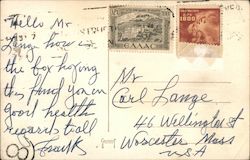 Hello Mr
Lange how is
the fox hoping
this find you in
good health
regards to all
Frank
ΕΛΛΑΣ
1000
Mr
Carl Lange
46 Wellington St
Worcester Mass
USA